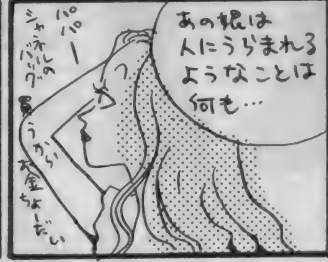 あの娘は
人にうらまれる
ようなことは
何も…
パパー
シャネルの
バッグ
買うから
お金ちょーだい